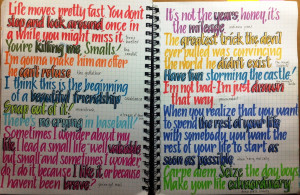 Life moves pretty fast. You don't
stop and look around once in
a while you might miss it.
You're killing me, Smalls!
I'm gonna make him an offer
he can't refuse
I think this is the beginning
of a beautiful friendship
Snap out of it!
There's no crying in baseball!
Sometimes I wonder about my
life. I lead a small life well valuable
but small and sometimes I wonder
do I do it because I like it or because
I haven't been brave?
It's not the years, honey, it's
the mileage
The greatest trick the devil
ever pulled was convincing
the world he didn't exist
Have fun storming the castle!
I'm not bad-I'm just drawn
that way.
When you realize that you want
to spend the rest of your life
with somebody, you want the
rest of your life to start as
soon as possible
Carpe diem. Seize the day, boys.
Make your life extraordinary